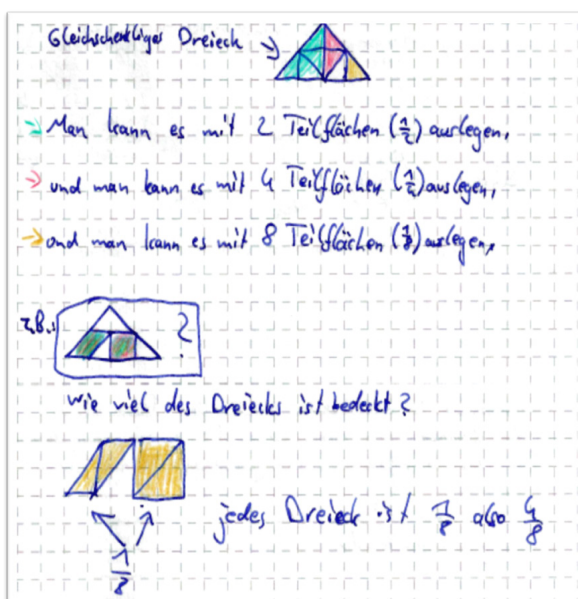 Gleichschenkliges Dreieck →
→ Man kann es mit 2 Teilflächen (1/2) auslegen,
→ und man kann es mit 4 Teilflächen (1/4) auslegen,
→ und man kann es mit 8 Teilflächen (1/8) auslegen,
z.B.:
?
Wie viel des Dreiecks ist bedeckt?
jedes Dreieck ist 1/8 also 4/8
1/8